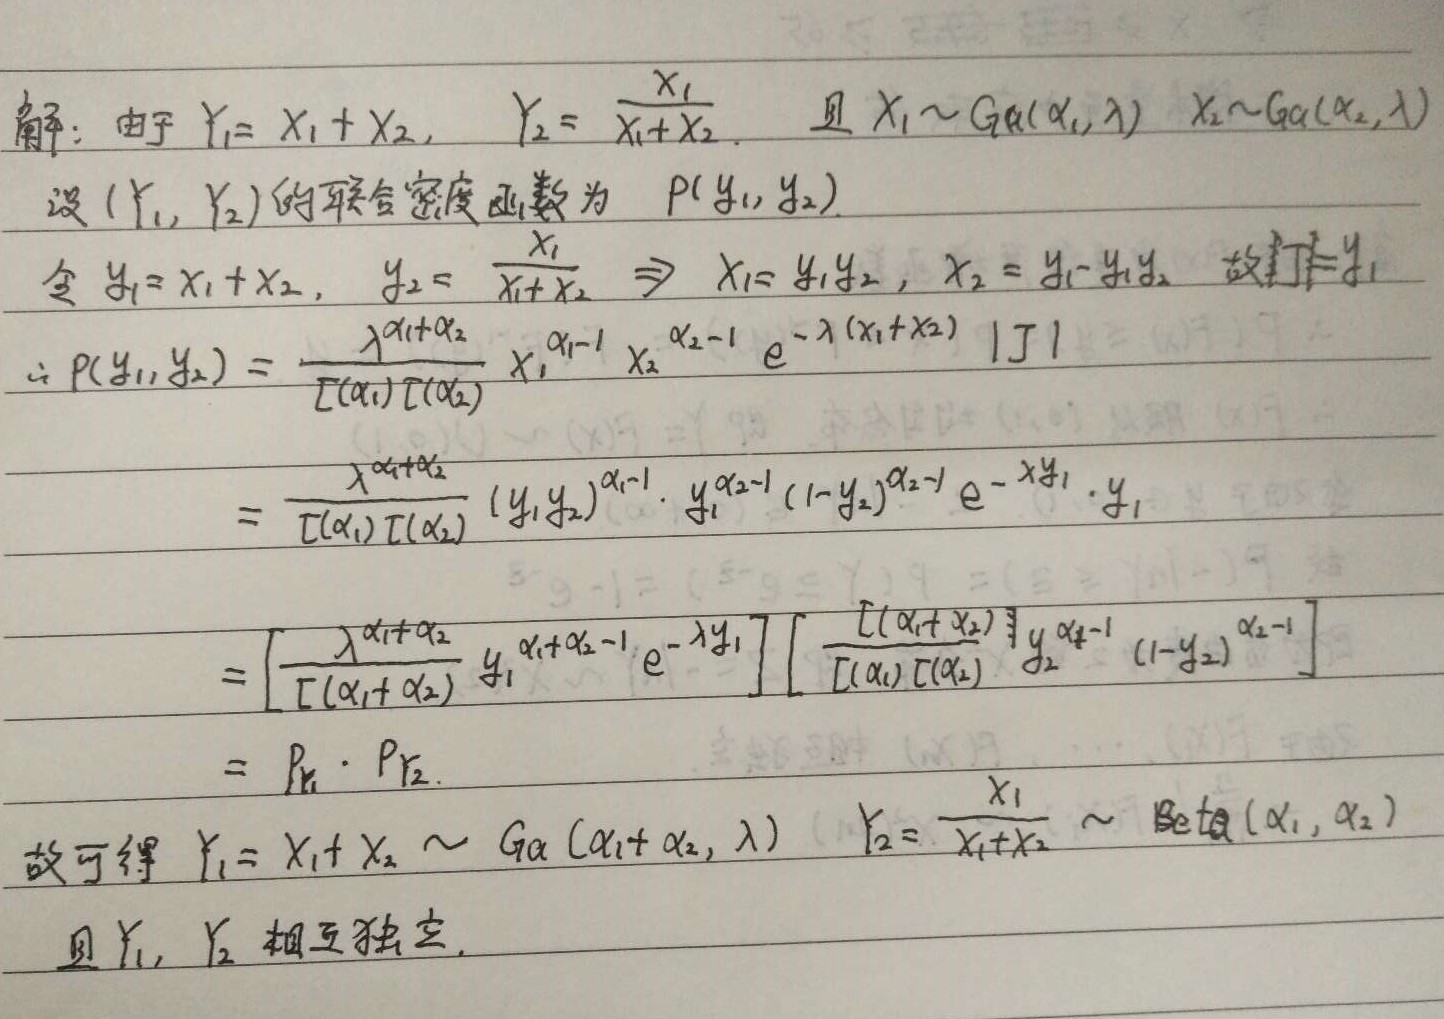 解: 由于 Y₁ = X₁ + X₂, Y₂ = X₁/(X₁+X₂). 且 X₁ ~ Ga(α₁, λ) X₂ ~ Ga(α₂, λ)
设 (Y₁, Y₂) 的联合密度函数为 P(y₁, y₂).
令 y₁ = x₁ + x₂, y₂ = x₁/(x₁+x₂) ⇒ x₁ = y₁y₂, x₂ = y₁ - y₁y₂ 故|J|=y₁
∴ P(y₁, y₂) = λ^(α₁+α₂)/(Γ(α₁)Γ(α₂)) x₁^(α₁-1) x₂^(α₂-1) e^(-λ(x₁+x₂)) |J|
= λ^(α₁+α₂)/(Γ(α₁)Γ(α₂)) (y₁y₂)^(α₁-1) · y₁^(α₂-1) (1-y₂)^(α₂-1) e^(-λy₁) · y₁
= [λ^(α₁+α₂)/Γ(α₁+α₂) y₁^(α₁+α₂-1) e^(-λy₁)] [Γ(α₁+α₂)/(Γ(α₁)Γ(α₂)) y₂^(α₁-1) (1-y₂)^(α₂-1)]
= P_Y₁ · P_Y₂.
故可得 Y₁ = X₁ + X₂ ~ Ga(α₁+α₂, λ) Y₂ = X₁/(X₁+X₂) ~ Beta(α₁, α₂)
且 Y₁, Y₂ 相互独立.